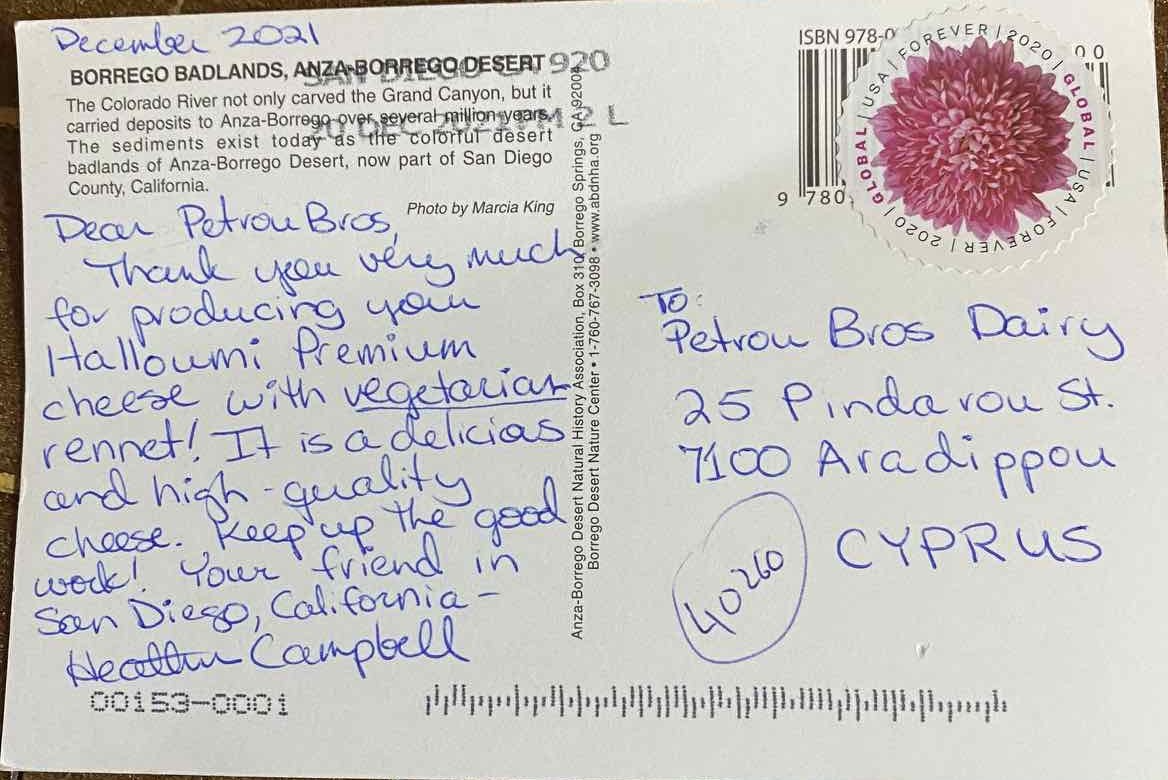 December 2021
BORREGO BADLANDS, ANZA-BORREGO DESERT
SAN DIEGO CA 920
20 DEC 2021 PM 2 L
The Colorado River not only carved the Grand Canyon, but it
carried deposits to Anza-Borrego over several million years.
The sediments exist today as the colorful desert
badlands of Anza-Borrego Desert, now part of San Diego
County, California.
Photo by Marcia King
Dear Petrou Bros,
Thank you very much
for producing your
Halloumi Premium
cheese with vegetarian
rennet! It is a delicias
and high-quality
cheese. Keep up the good
work! Your friend in
San Diego, California –
Heather Campbell
00153-0001
Anza-Borrego Desert Natural History Association, Box 310, Borrego Springs, CA 92004
Borrego Desert Nature Center • 1-760-767-3098 • www.abdnha.org
ISBN 978-0
00
9 780
GLOBAL | USA | FOREVER | 2020 | GLOBAL | USA | FOREVER | 2020 |
To:
Petrou Bros Dairy
25 Pindarou St.
7100 Aradippou
CYPRUS
40260